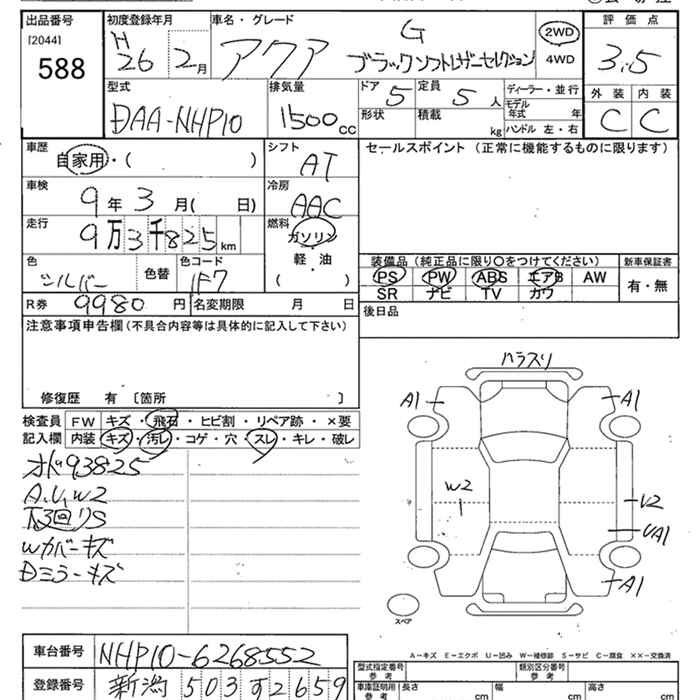 出品番号
[2044]
588
初度登録年月
H
26 2月
車名・グレード
アクア
G
ブラックソフトレザーセレクション
2WD
4WD
評価点
3.5
外装 内装
C C
型式
DAA-NHP10
排気量
1500cc
ドア 5
形状
定員 5人
積載 kg
ディーラー・並行
モデル年式 年
ハンドル 左・右
車歴
自家用・( )
シフト
AT
セールスポイント (正常に機能するものに限ります)
車検
9年3月( 日)
冷房
AAC
走行
9万3千825km
燃料
ガソリン
軽・油
( )
色
シルバー
色替
色コード
1F7
装備品 (純正品に限り○をつけてください)
PS PW ABS エアB AW
SR ナビ TV カワ
新車保証書
有・無
R券 9980円
名変期限 月 日
後日品
注意事項申告欄(不具合内容等は具体的に記入して下さい)
修復歴 有 〔箇所 〕
検査員
記入欄
FW キズ・飛石・ヒビ割・リペア跡・×要
内装 キズ・汚レ・コゲ・穴・スレ・キレ・破レ
オド93825
A.U.W2
下3回りS
Wカバーキズ
Dミラーキズ
ハラスリ
A1
A1
W2
U2
UA1
A1
スペア
A−キズ E−エクボ U−凹み W−補修跡 S−サビ C−腐食 ××−交換済
車台番号
NHP10-6268552
登録番号
新潟503す2659
型式指定番号
参考
類別区分番号
参考
車庫証明用
参考
長さ cm
幅 cm
高さ cm